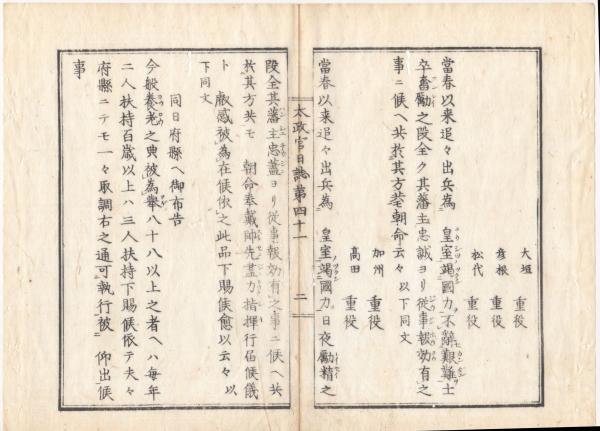 大垣 重役
彦根 重役
松代 重役
當春以来追々出兵為 皇室竭國力不辭艱難士
卒奮勵之段全ク其藩主忠誠ヨリ従事報効有之
事ニ候ヘ共於其方モ朝命云々以下同文
加州 重役
高田 重役
當春以来追々出兵為 皇室竭國力日夜勵精之
太政官日誌第四十一 二
段全其藩主忠藎ヨリ従事報効有之事ニ候ヘ共
於其方共モ 朝命奉戴帥先盡力指揮行届候儀
ト 叡感被為在候依之此品下賜候愈以云々以
下同文
同日府縣ヘ御布告
今般養老之典被為舉八十八以上之者ヘハ毎年
二人扶持百歳以上ハ三人扶持下賜候依テ夫々
府縣ニテモ一々取調右之通可執行被 仰出候
事